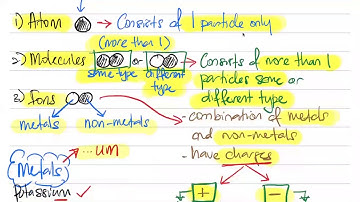 1) Atom → Consists of 1 particle only
(more than 1)
2) Molecules or → Consists of more than 1
same type different type particles same or
different type
3) Ions
metals non-metals - combination of metals
and non-metals
...um - have charges
Metals
Potassium ✓ + −